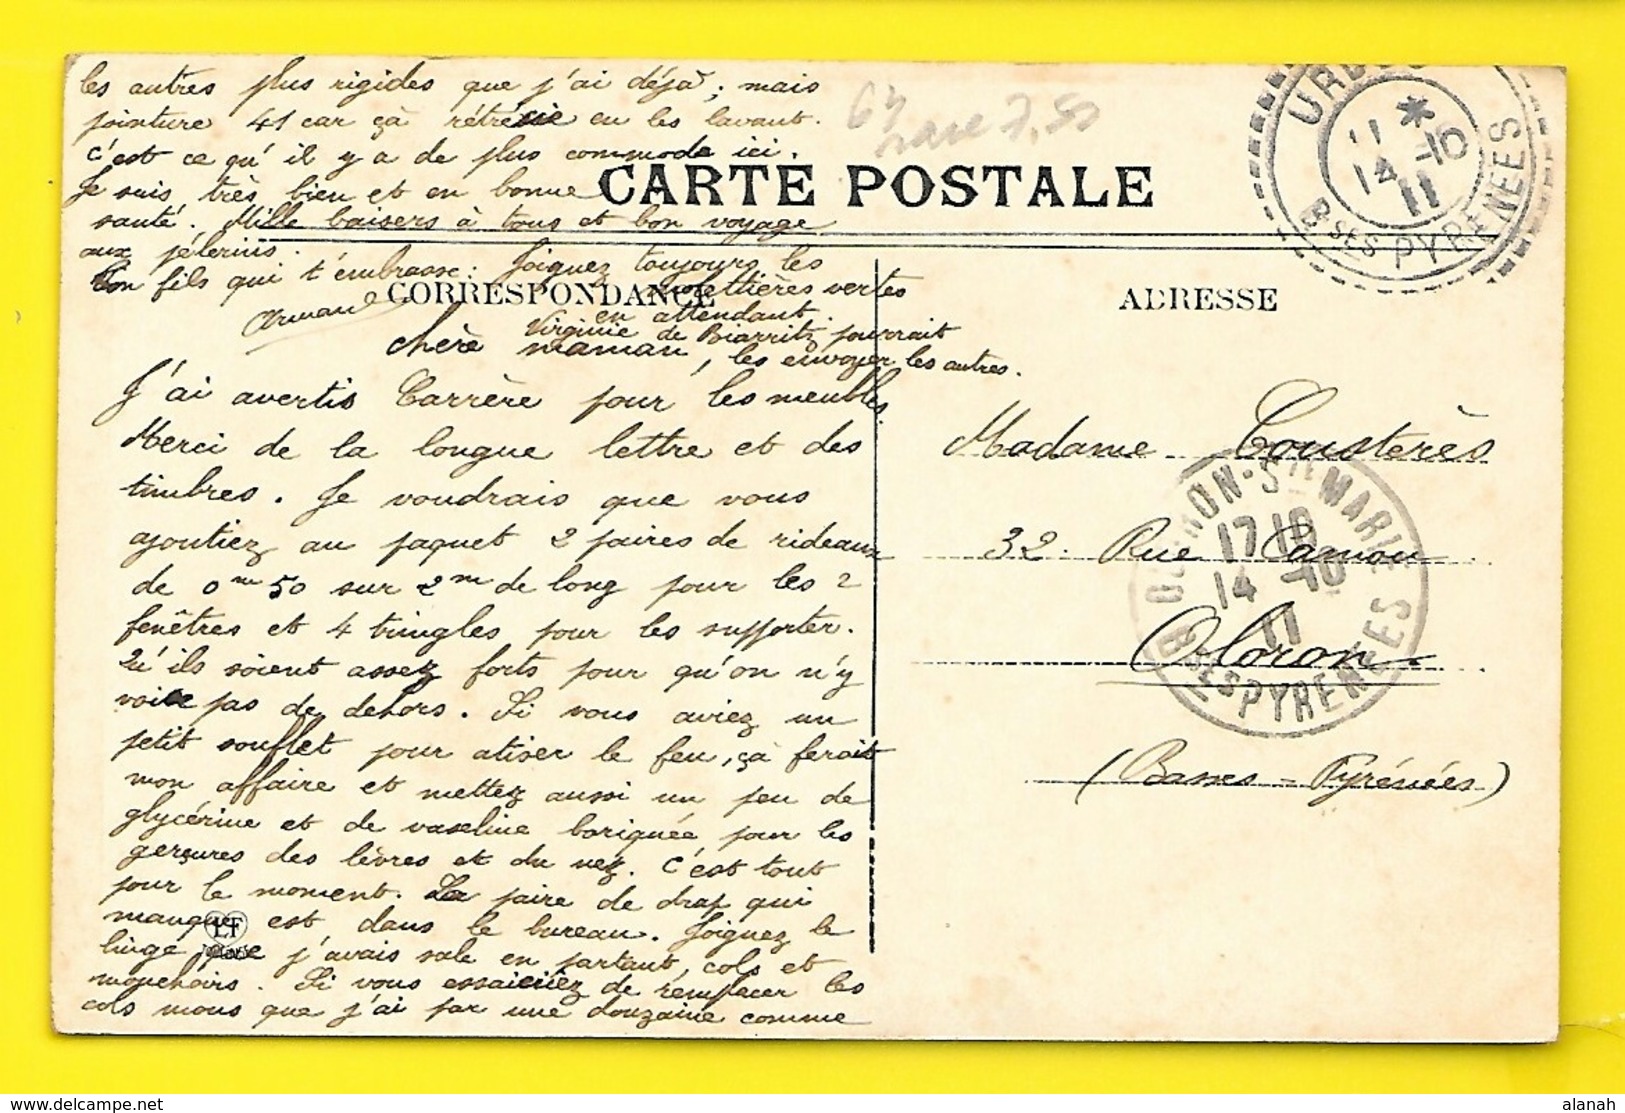 les autres plus rigides que j'ai déjà ; mais
pointure 41 car çà rétrécie en les lavant.
c'est ce qu'il y a de plus commode ici.
Je suis très bien et en bonne
santé. Mille baisers à tous et bon voyage
aux pélerins.
Ton fils qui t'embrasse : Joignez toujours les
molettières vertes
en attendant.
Armand
Virginie de Biarritz pourrait
les envoyer les autres.
CARTE POSTALE
CORRESPONDANCE
chère maman,
J'ai avertis Carrère pour les meubles.
Merci de la longue lettre et des
timbres. Je voudrais que vous
ajoutiez au paquet 2 paires de rideaux
de 0m50 sur 2m de long pour les 2
fenêtres et 4 tringles pour les supporter.
Qu'ils soient assez forts pour qu'on n'y
voie pas de dehors. Si vous aviez un
petit soufflet pour atiser le feu, çà ferait
mon affaire et mettez aussi un peu de
glycérine et de vaseline boriquée pour les
gerçures des lèvres et du nez. C'est tout
pour le moment. La paire de drap qui
manque est dans le bureau. Joignez le
linge que j'avais sale en partant, cols et
mouchoirs. Si vous essaieriez de remplacer les
cols mous que j'ai par une douzaine comme
LF
ADRESSE
Madame Cousterès
32 Rue Camou
Oloron
(Basses=Pyrénées)
64
rare 7,50
11 *
14 -10
11
BSES PYRENEES
OLORON-STE MARIE
17 10
14 -10
11
BSES PYRENEES
alanah